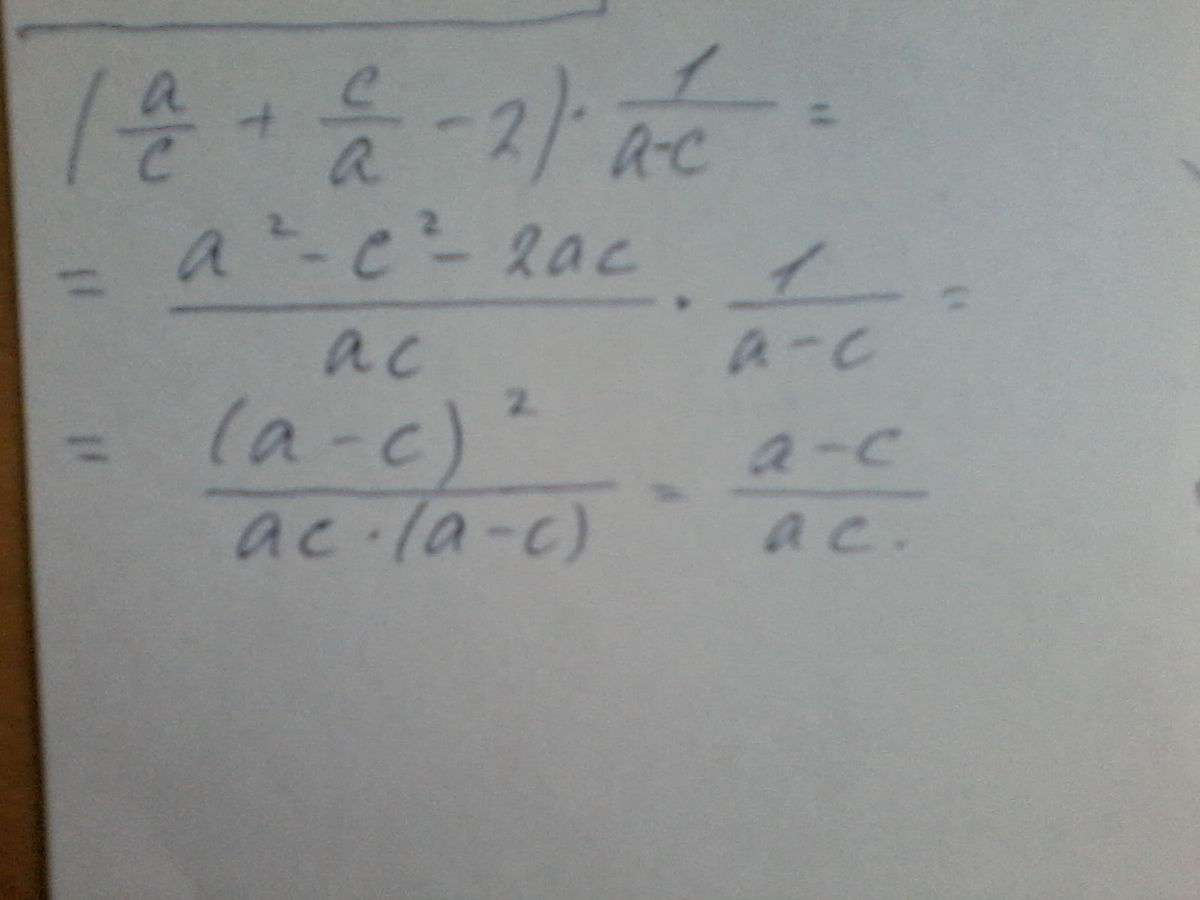 (a/c + c/a - 2) · 1/(a-c) =
= (a² - c² - 2ac)/(ac) · 1/(a-c) =
= (a-c)²/(ac·(a-c)) = (a-c)/(ac).